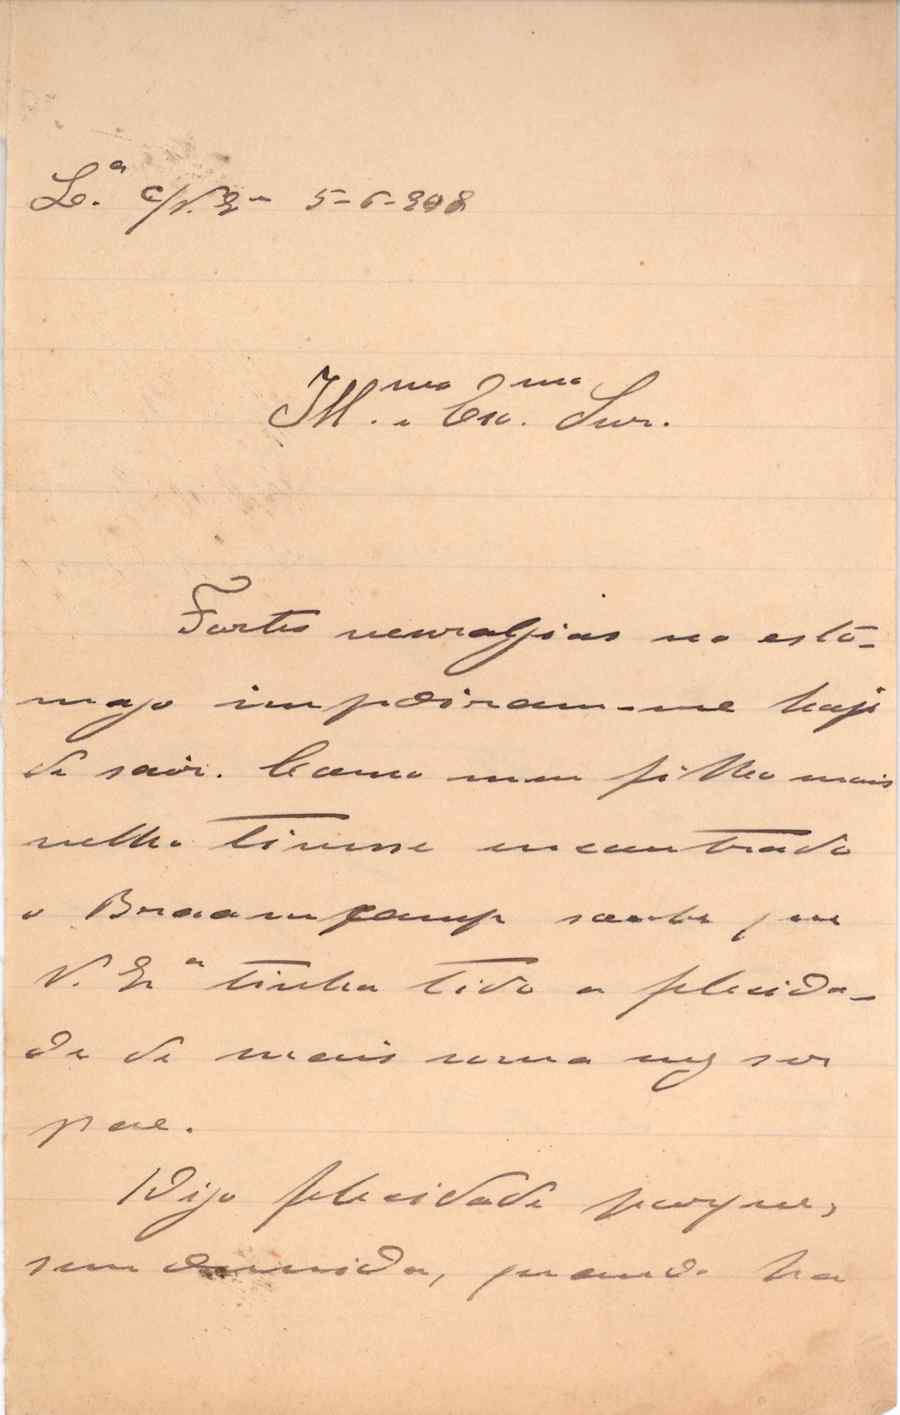 L.ª c/V. Ex.ª 5-6-908
Ill.mo e Ex.mo Snr.
Fortes nevralgias no estô-
mago impediram-me hoje
de sair. Como meu filho mais
velho tivesse encontrado
o Braamcamp soube que
V. Ex.ª tinha tido a felicida-
de de mais uma vez ser
pae.
Digo felicidade porque,
sem duvida, quando ha